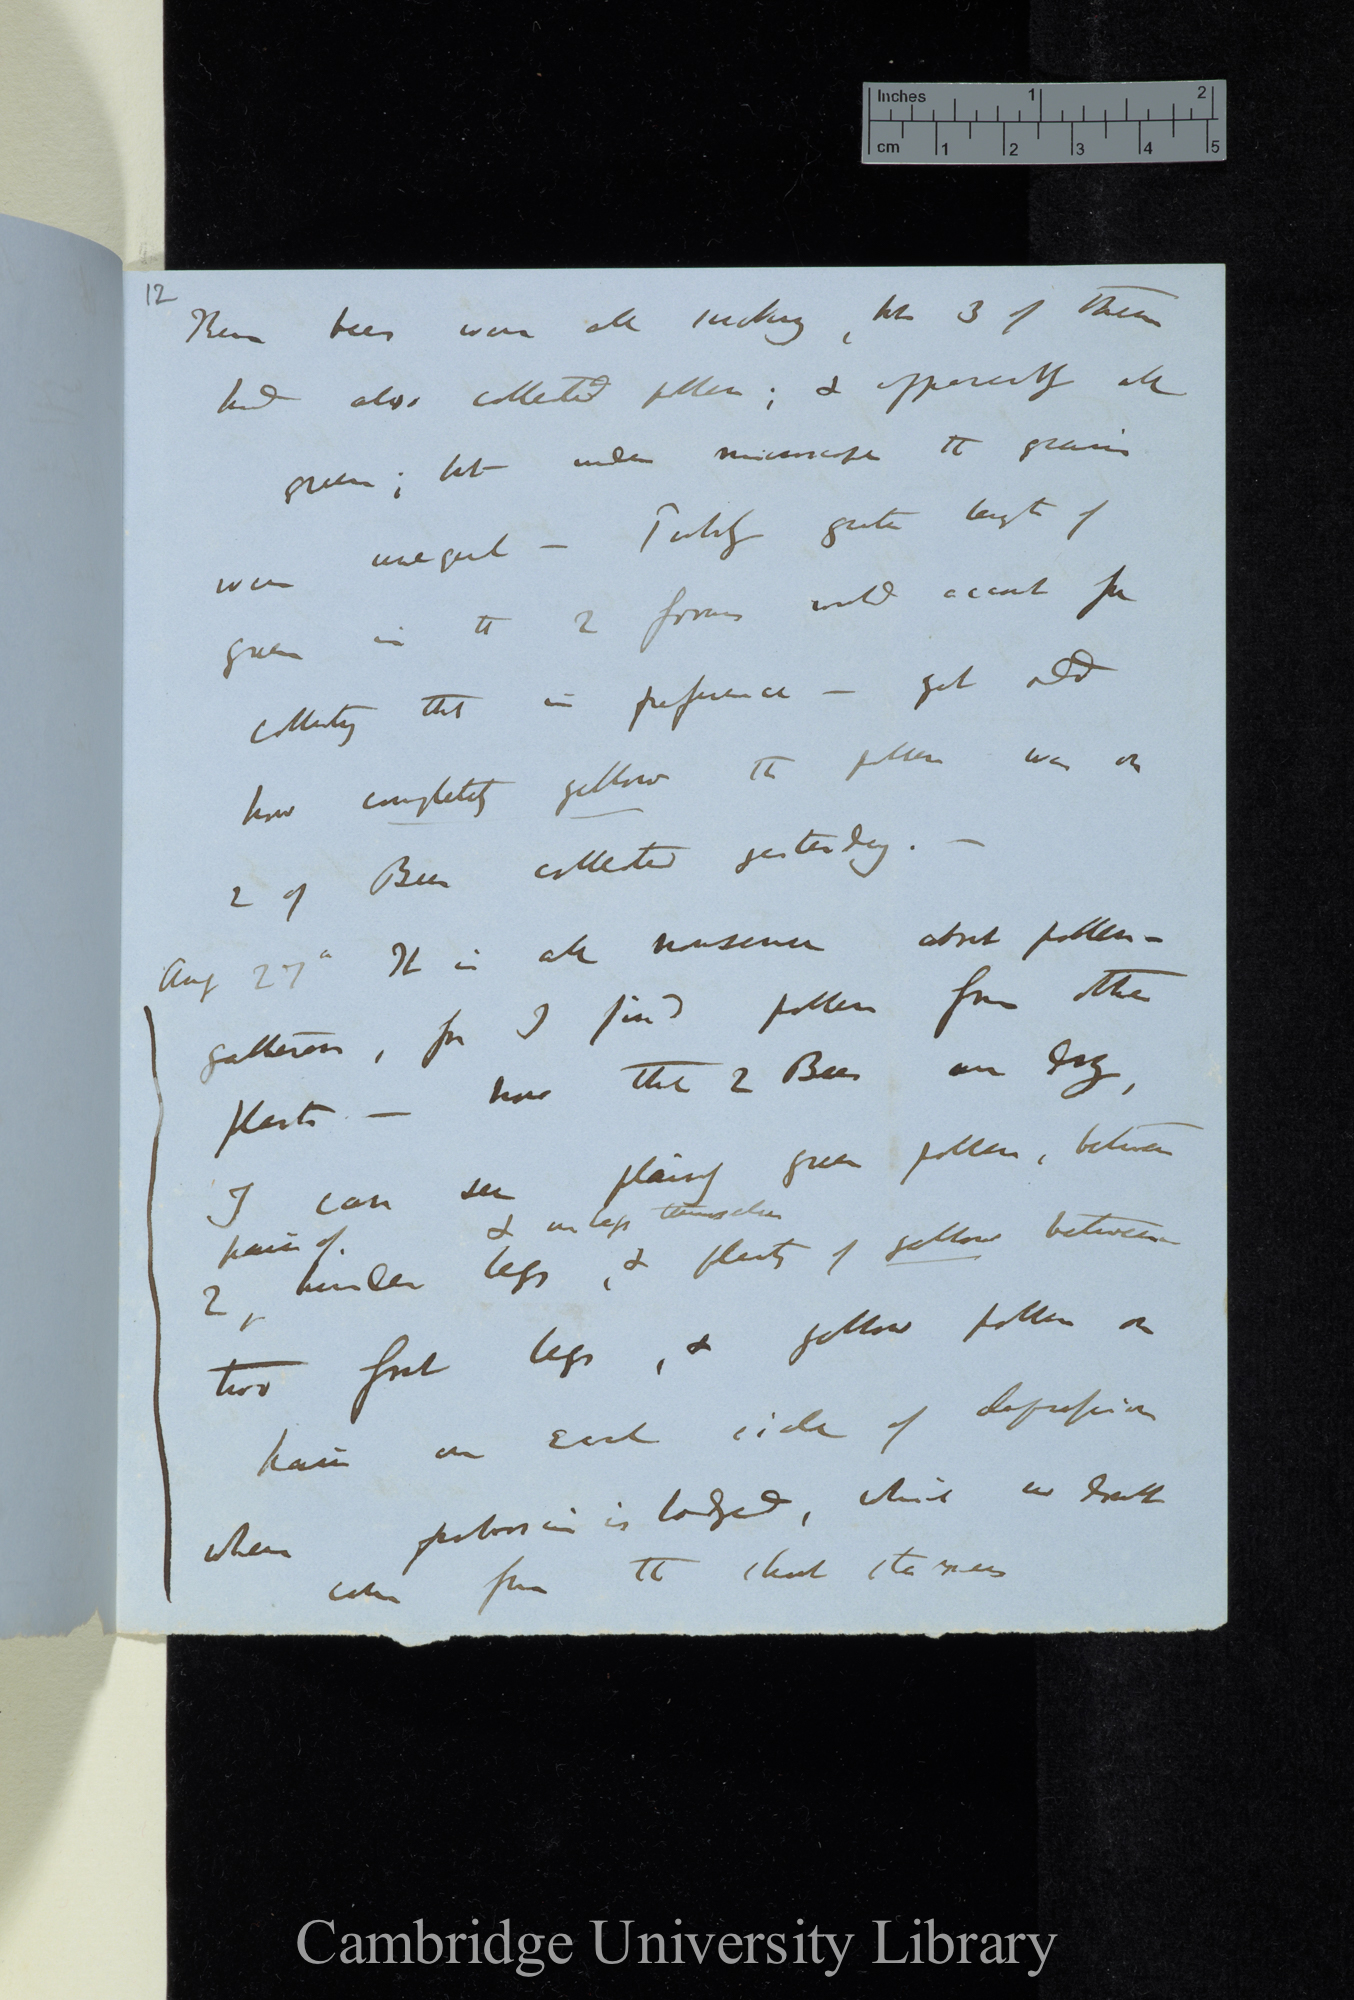 Inches 1 2
cm 1 2 3 4 5
12
These bees were all sucking, but 3 of them
had also collected pollen; & apparently all
green; but under microscope the grains
were unequal — greater length of
green in the 2 forms would account for
collecting that in preference — yet odd
how completely yellow the pollen was on
2 of Bees collected yesterday. —
Aug 27th It is all nonsense about pollen-
gatherers, for I find pollen from other
plants — now that 2 Bees are dry,
I can see plainly green pollen, between
pairs of. & on legs themselves
2, hinder legs, & plenty of yellow between
two front legs, & yellow pollen on
hairs on each side of depression
where proboscis is lodged, which no doubt
comes from the short stamens
Cambridge University Library